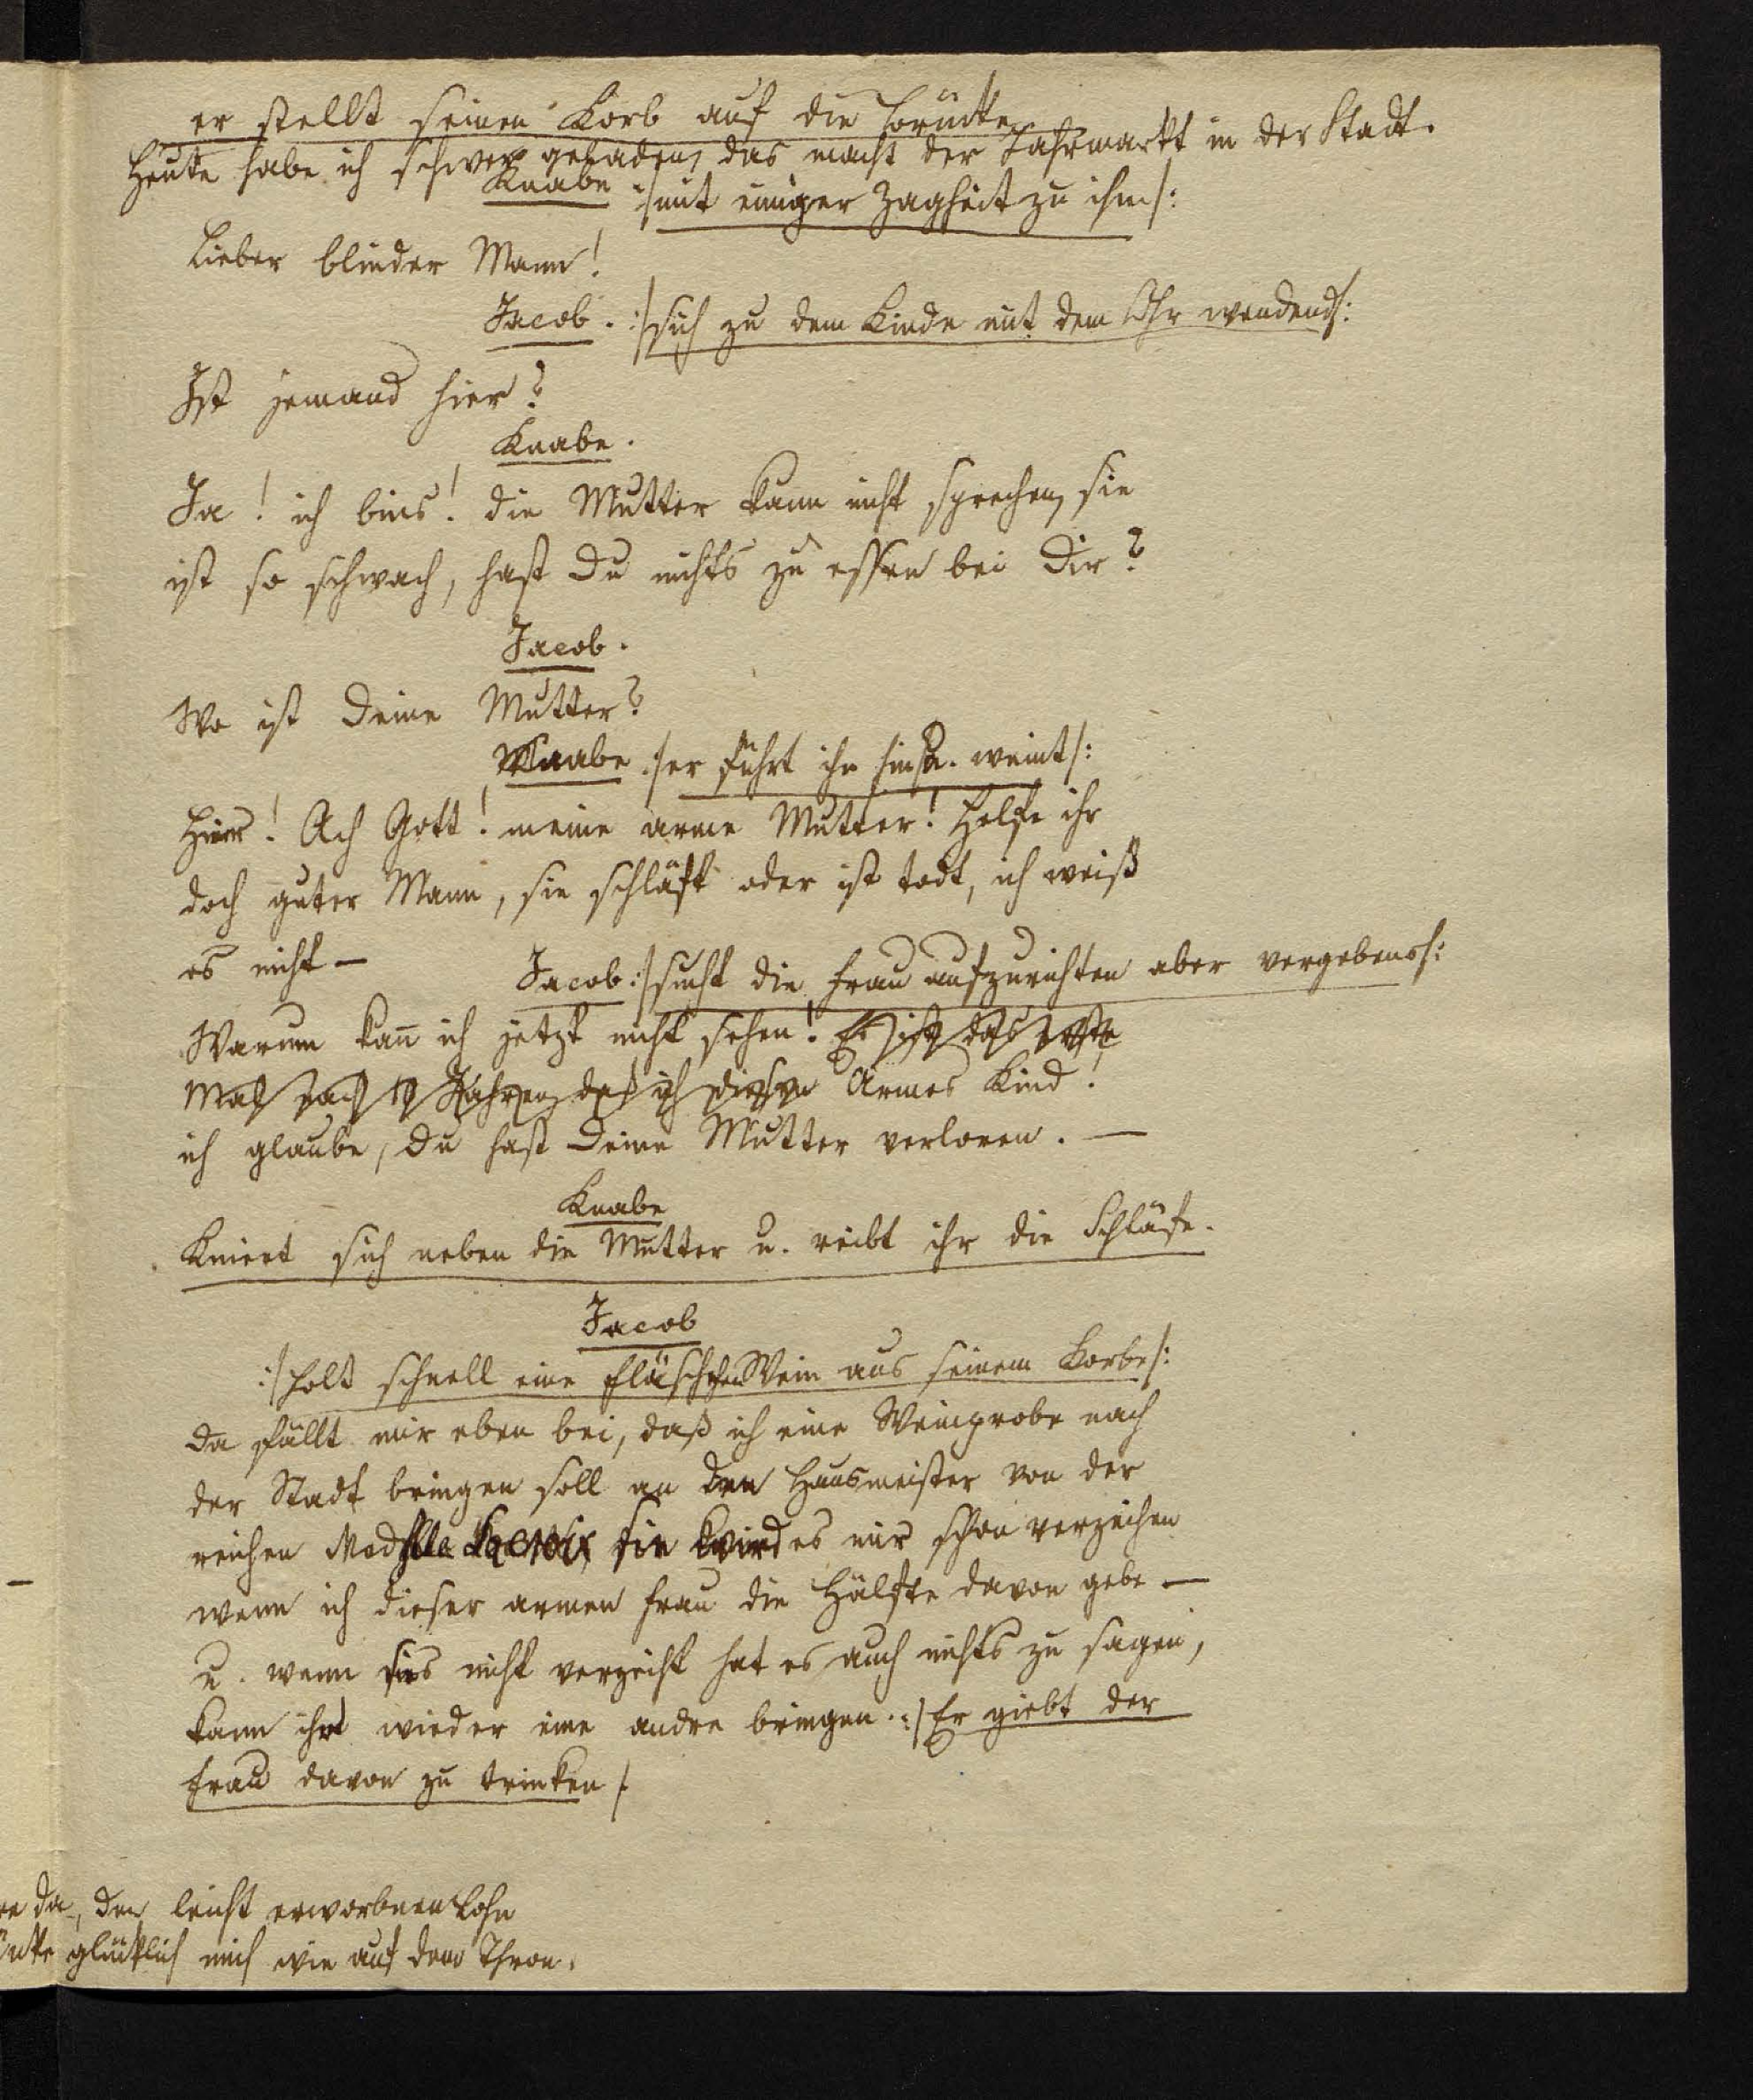 er stellt seinen Korb auf die Brücke
Heute habe ich schwer geladen, das macht der Jahrmarkt in der Stadt.
Knabe :/mit einiger Zagheit zu ihm/:
Lieber blinder Mann!
Jacob. :/sich zu dem Kinde mit dem Ohr wendend/:
Ist jemand hier?
Knabe.
Ja! ich bins! die Mutter kann nicht sprechen, sie
ist so schwach, hast Du nichts zu essen bei Dir?
Jacob.
Wo ist Deine Mutter?
Knabe :/er führt ihn hin u. weint/:
Hier! Ach Gott! meine arme Mutter! Helfe ihr
doch guter Mann, sie schläft oder ist todt, ich weiß
es nicht —
Jacob :/sucht die Frau aufzurichten aber vergebens/:
Warum kan̄ ich jetzt nicht sehen! Es ist das erste
Mal nach Jahren, daß ich diesen Armes Kind!
ich glaube, Du hast Deine Mutter verloren. —
Knabe
Kniet sich neben die Mutter u. reibt ihr die Schläfe.
Jacob
:/holt schnell eine Fläschchen Wein aus seinem Korbe/:
Da fällt mir eben bei, daß ich eine Weinprobe nach
der Stadt bringen soll an den Hausmeister von der
reichen sie wird es mir schon verzeihen
wenn ich dieser armen Frau die Hälfte davon gebe —
u. wenn sies nicht verzeiht hat es auch nichts zu sagen,
kann ihr wieder eine andre bringen. :/Er giebt der
Frau davon zu trinken/
da, den leicht erworbnen Lohn
glücklich mich wie auf dem Thron.